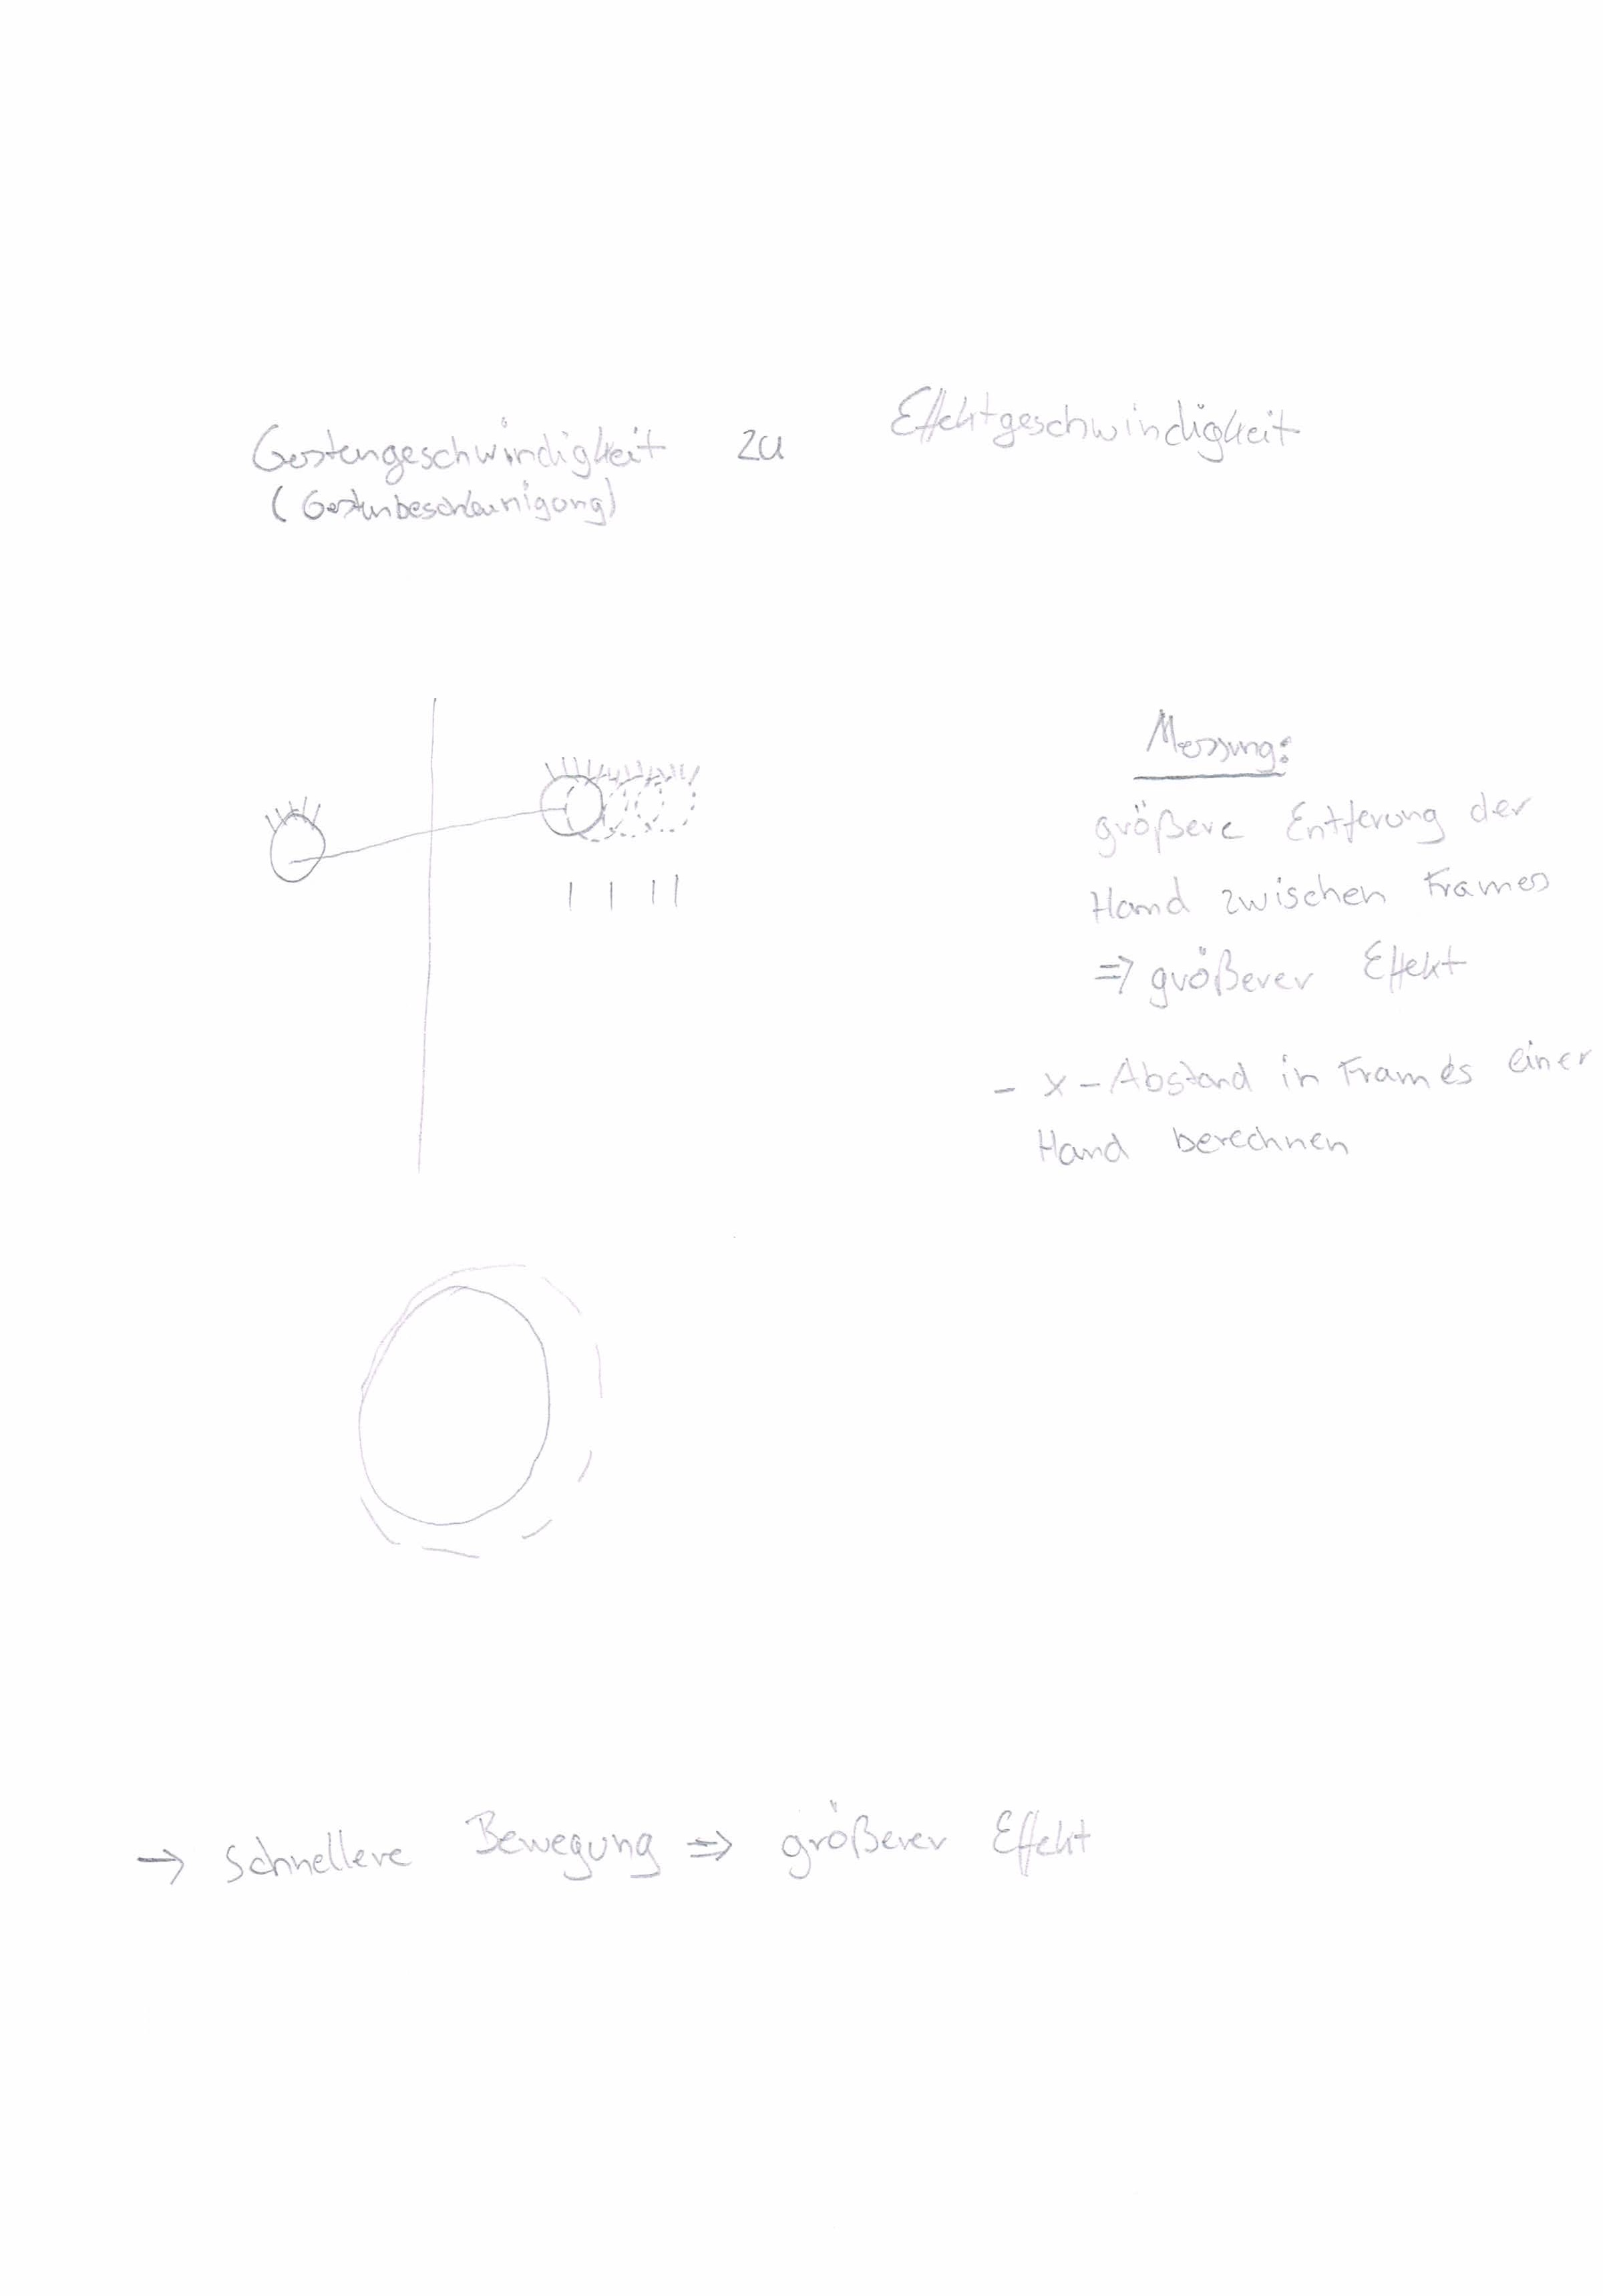 Gestengeschwindigkeit zu Effektgeschwindigkeit
(Gestenbeschleunigung)
Messung:
größere Entferung der
Hand zwischen Frames
⇒ größerer Effekt
- x-Abstand in Frames einer
Hand berechnen
→ schnellere Bewegung ⇒ größerer Effekt